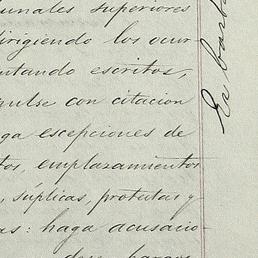 unales superiores
dirigiendo los ocur
ntando escritos,
pulse con citacion
ga escepciones de
tos, emplazamientos
, súplicas, protestas y
as: haga acusacio-
En